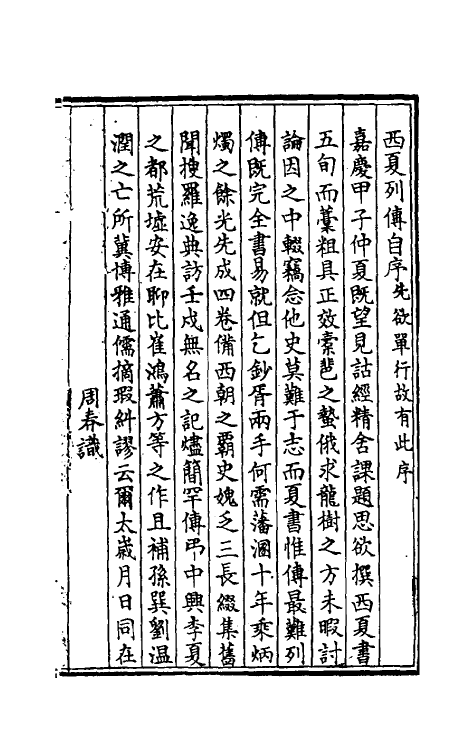 西夏列傳自序先欲單行故有此序
嘉慶甲子仲夏既望見詁經精舍課題思欲撰西夏書
五旬而藁粗具正效橐琶之蟄俄求龍樹之方未暇討
論因之中輟竊念他史莫難于志而夏書惟傳最難列
傳既完全書易就但乞鈔胥兩手何需藩溷十年乘炳
燭之餘光先成四卷備西朝之霸史媿乏三長綴集舊
聞搜羅逸典訪壬戍無名之記爐簡罕傳弔中興李夏
之都荒墟安在聊比崔鴻蕭方等之作且補孫巽劉温
潤之亡所冀博雅通儒摘瑕糾謬云爾太歲月日同在
周春識